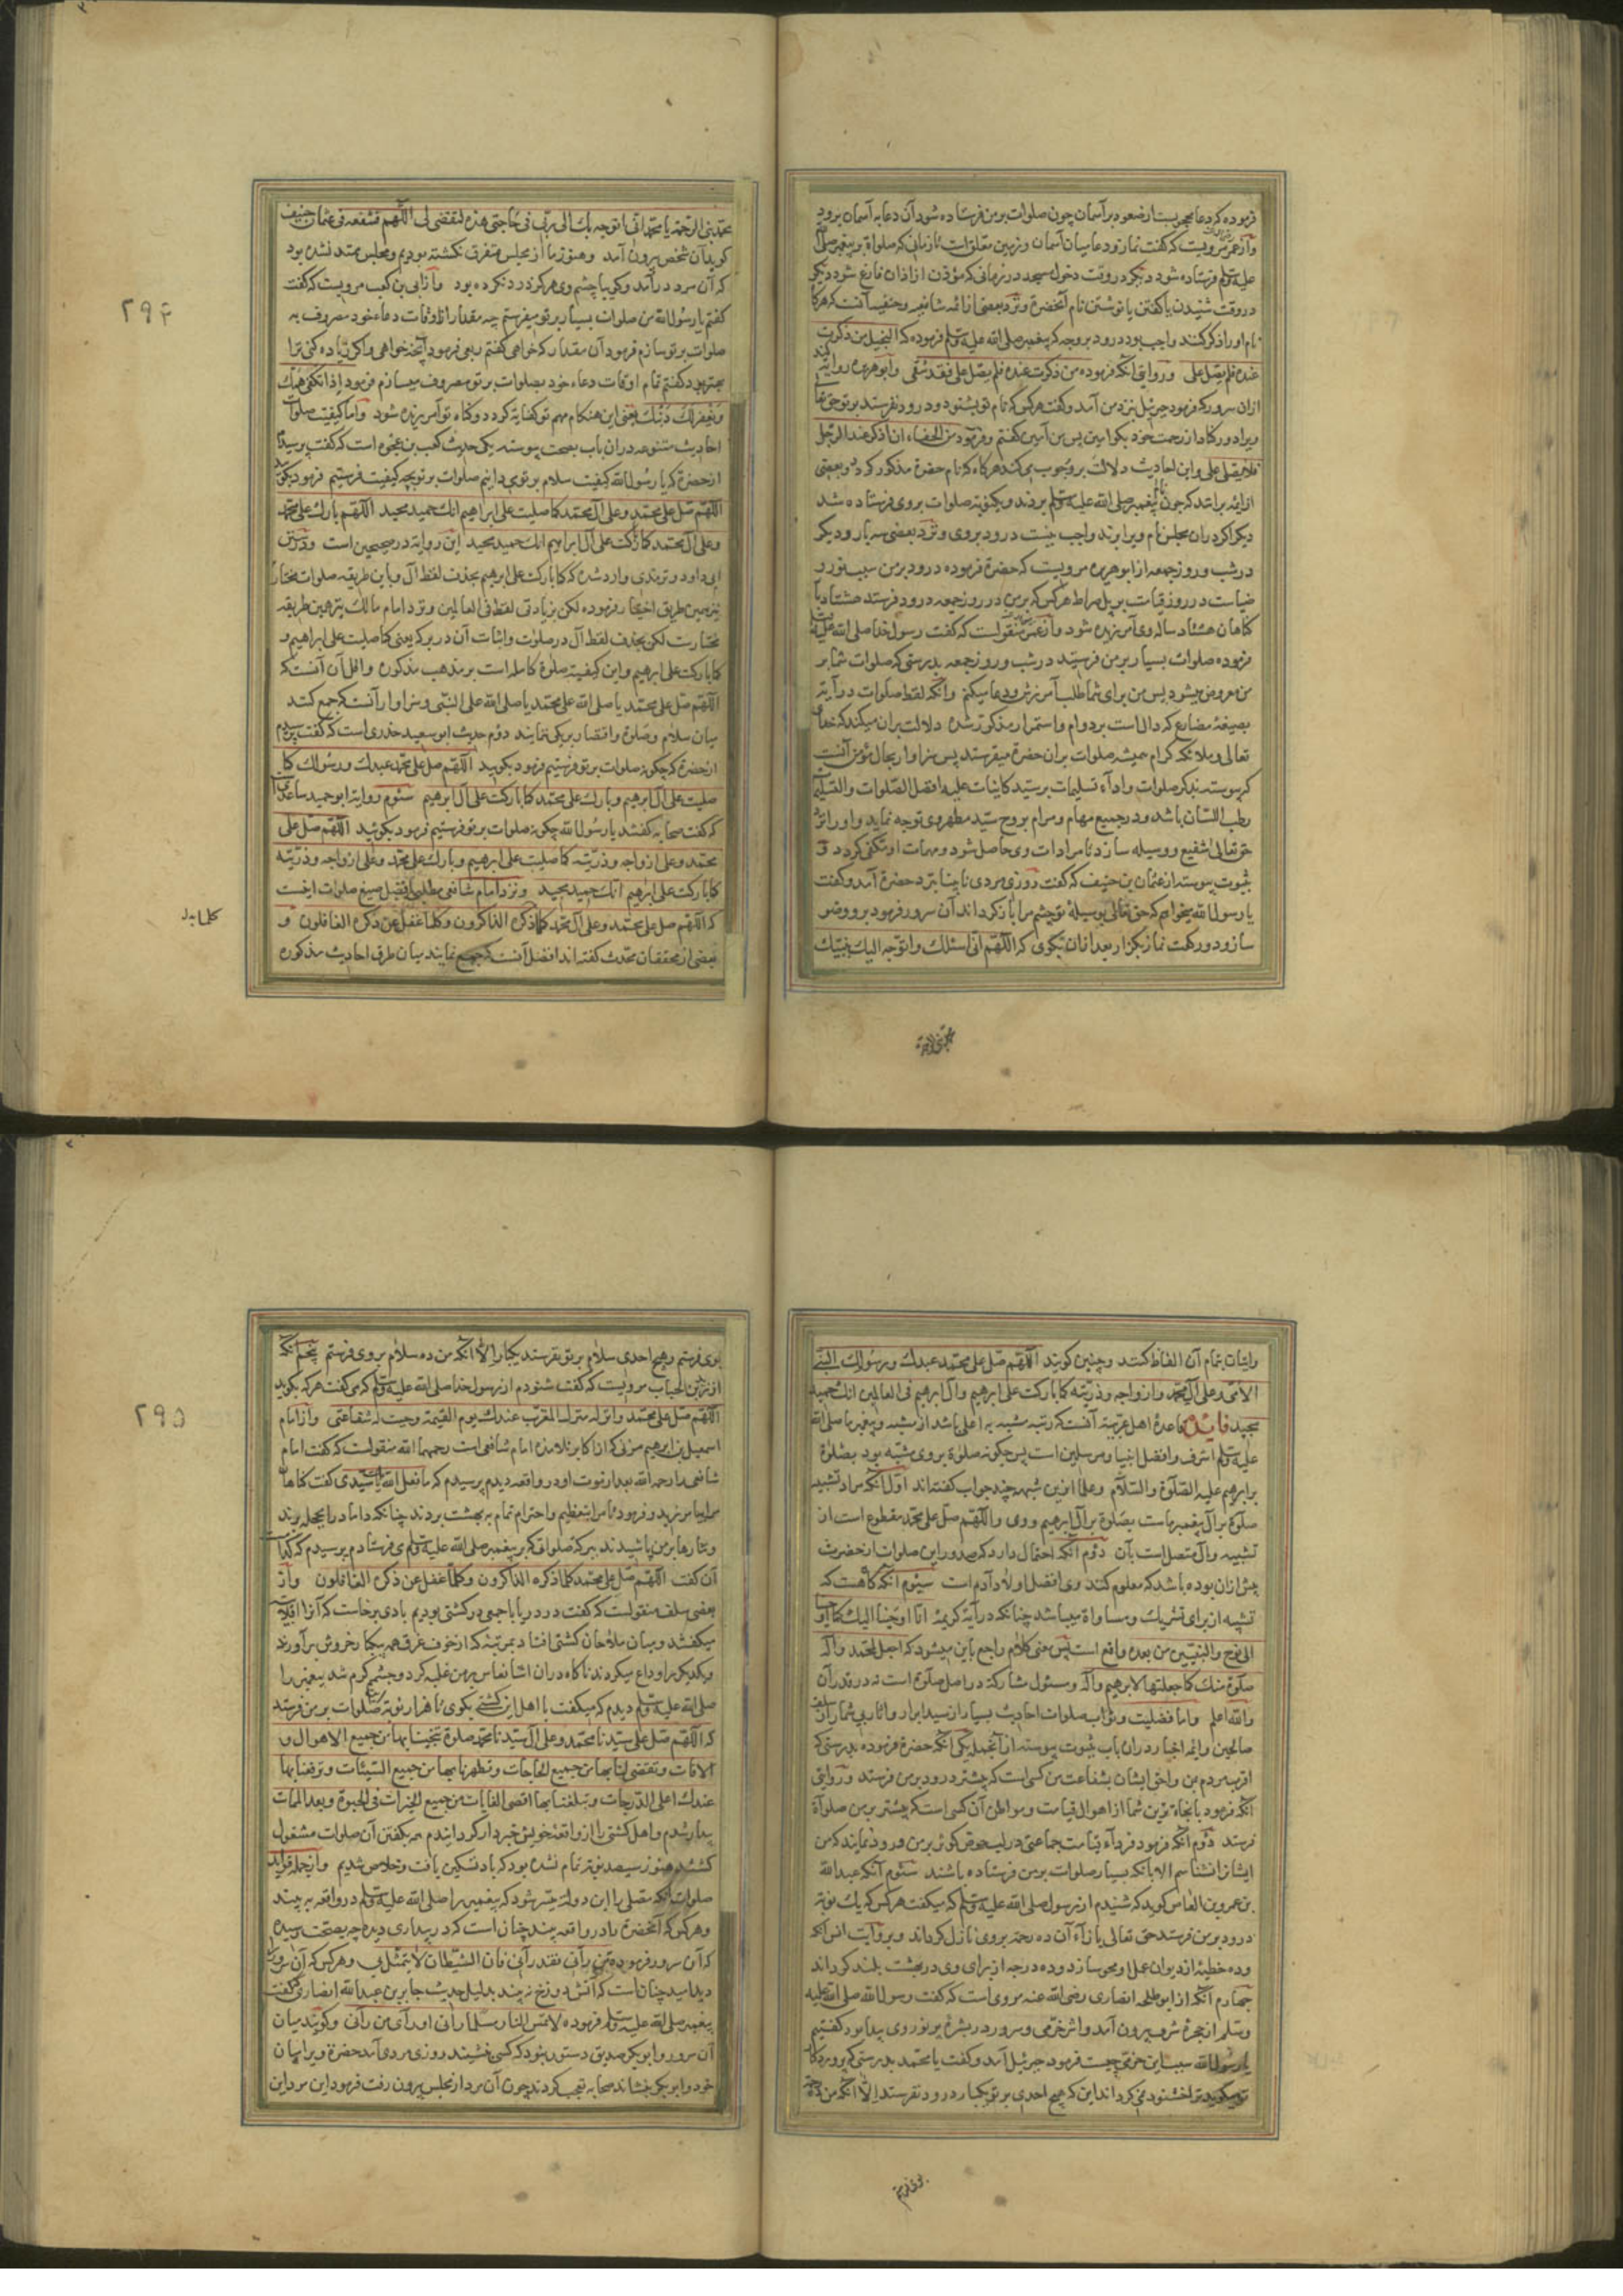 فرموده که دعا محجوبست از صعود بر آسمان چون صلوات بر من فرستاده شود آن دعا به آسمان برود
و از عمر مرویست که گفت نماز و دعا میان آسمان و زمین معلق است تا زمانی که صلوة بر پیغمبر صلی الله
علیه وسلم فرستاده شود دیگر در وقت دخول مسجد در زمانی که مؤذن از اذان فارغ شود دیگر
در وقت شنیدن یا گفتن یا نوشتن نام آنحضرة و نزد بعضی از ائمه شافعیه و حنفیه آنست که هرگاه
نام او را ذکر کنند واجب بود درود بر وجه که پیغمبر صلی الله علیه وسلم فرموده که البخیل من ذکرت
عنده فلم یصل علی و روایتی آنکه فرموده من ذکرت عنده فلم یصل علی فقد شقی و ابو هریره روایت
از آن سرور که فرمود جبرئیل نزد من آمد و گفت هر کس که نام تو بشنود و درود نفرستد بر تو حق تعالی
ویرا دور گرداند از رحمت خود بگو امین پس من آمین گفتم و فرمود من الجفاء ان اذکر عند الرجل
فلا یصلی علی و این احادیث دلالت بر وجوب می کند هرگاه که نام حضرة مذکور گردد و بعضی
از ائمه برانند که چون نام پیغمبر صلی الله علیه وسلم بردند و یک نوبة صلوات بر وی فرستاده شد
دیگر اگر در آن مجلس نام ویرا برند واجب نیست درود بر وی و نزد بعضی سه بار و دیگر
در شب و روز جمعه از ابو هریره مرویست که حضرة فرموده درود بر من سبب نور و
ضیاست در روز قیامت بر پل صراط هر کس که بر من در روز جمعه درود فرستد هشتاد بار
گناهان هشتاد ساله وی آمرزیده شود و از عمر منقولست که گفت رسول خدا صلی الله علیه
فرموده صلوات بسیار بر من فرستید در شب و روز جمعه بدرستی که صلوات شما بر
من معروض میشود پس من برای شما طلب آمرزش و دعا میکنم و آنکه لفظ صلوات در آیة
بصیغهٔ مضارع که دال است بر دوام و استمرار مذکور شده دلالت بر آن میکند که خدای
تعالی و ملائکه کرام همیشه صلوات بر آن حضرة میفرستند پس سزاوار بحال مؤمن آنست
که پیوسته بذکر صلوات و اداء تسلیمات بر سید کاینات علیه افضل الصلوات و التسلیمات
رطب اللسان باشد و در جمیع مهام و مرام بروح سید مطهر وی توجه نماید و او را نزد
حق تعالی شفیع و وسیله سازد تا مرادات وی حاصل شود و مهمات او مکفی گردد و
بثبوت پیوسته از عثمان بن حنیف که گفت روزی مردی نابینا نزد حضرة آمد و گفت
یا رسول الله میخواهم که حق تعالی بوسیلهٔ تو چشم مرا باز گرداند آن سرور فرمود برو وضو
ساز و دو رکعت نماز بگزار بعد از آن بگوی که اللهم انی اسئلك و اتوجه الیك بنبیك
محمد نبی الرحمة
محمد نبی الرحمة یا محمد انی اتوجه بك الی ربی فی حاجتی هذه لتقضی لی اللهم فشفعه فی عثمان حنیف
گوید آن شخص بیرون آمد و هنوز ما از مجلس متفرق نگشته بودیم و مجلس ممتد نشده بود
که آن مرد درآمد و گویا چشم وی هرگز درد نکرده بود و از ابی بن کعب مرویست که گفت
گفتم یا رسول الله من صلوات بسیار بر تو میفرستم چه مقدار از اوقات دعاء خود مصروف به
صلوات بر تو سازم فرمود آن مقدار که خواهی گفتم ربعی فرمود آنچه خواهی و اگر زیاده کنی ترا
بهتر بود گفتم تمام اوقات دعاء خود بصلوات بر تو مصروف میسازم فرمود اذا تکفی همك
و یغفر لك ذنبك یعنی این هنگام مهم تو کفایة گردد و گناه تو آمرزیده شود و اما کیفیت صلوات
احادیث متنوعه در آن باب بصحت پیوسته یکی حدیث کعب بن عجره است که گفت پرسیدند
از حضرة که یا رسول الله کیفیت سلام بر تو می دانیم صلوات بر تو بچه کیفیت فرستیم فرمود بگوئید
اللهم صل علی محمد و علی آل محمد کما صلیت علی ابراهیم انك حمید مجید اللهم بارك علی محمد
و علی آل محمد کما بارکت علی آل ابراهیم انك حمید مجید این روایة در صحیحین است و در سنن
ابی داود و ترمذی وارد شده که کما بارکت علی ابرهیم بحذف لفظ آل و باین طریقه صلوات مختار
نیز همین طریق اختیار فرموده لکن بزیادتی لفظ فی العالمین و نزد امام مالك نیز همین طریقه
مختارست لکن بحذف لفظ آل در صلوات و اثبات آن در برکه یعنی کما صلیت علی ابراهیم و
کما بارکت علی ابرهیم و این کیفیة صلوة کامله است بر مذهب مذکوره و اقل آن آنست که
اللهم صل علی محمد یا صلی الله علی محمد یا صلی الله علی النبی و سزاوار آنست که جمع کنند
میان سلام و صلوة و اقتصار بر یکی ننمایند دوم حدیث ابو سعید خدری است که گفت پرسیدیم
از حضرة که چگونه صلوات بر تو فرستیم فرمود بگویید اللهم صل علی محمد عبدك و رسولك کما
صلیت علی آل ابرهیم و بارك علی محمد کما بارکت علی آل ابرهیم سئوم روایة ابو حمید ساعدی
که گفت صحابه گفتند یا رسول الله چگونه صلوات بر تو فرستیم فرمود بگوئید اللهم صل علی
محمد و علی ازواجه و ذریته کما صلیت علی ابرهیم و بارك علی محمد و علی ازواجه و ذریته
کما بارکت علی ابرهیم انك حمید مجید و نزد امام شافعی مطلبی افضل صیغ صلوات اینست
که اللهم صل علی محمد و علی آل محمد کلما ذکره الذاکرون و کلما غفل عن ذکره الغافلون و
بعضی از محققان محدث گفته اند افضل آنست که جمع نمایند میان طرق احادیث مذکوره
۲۹۴
و اثبات تمام آن الفاظ کنند و چنین گویند اللهم صل علی محمد عبدك و رسولك النبی
الامی و علی آل محمد و ازواجه و ذریته کما بارکت علی ابرهیم و آل ابرهیم فی العالمین انك حمید
مجید فائده قاعدهٔ اهل عربیة آنست که رتبه مشبه به اعلی باشد از مشبه و پیغمبر ما صلی الله
علیه وسلم اشرف و افضل انبیا و مرسلین است پس چگونه صلوة بر وی مشبه بود بصلوة
بر ابرهیم علیه الصلوة والسلام و علما ازین شبهه چند جواب گفته اند اول آنکه مراد تشبیه
صلوة بر آل پیغمبر ماست بصلوة بر آل ابرهیم و وی و اللهم صل علی محمد مقطوع است از
تشبیه و بآل متصل است بآن دوم آنکه احتمال دارد که صدور این صلوات از حضرت
پیش از آن بوده باشد که معلوم کنند وی افضل اولاد آدم است سیوم آنکه گاهست که
تشبیه از برای تشریك و مساواة میباشد چنانکه در آیة کریمهٔ انا اوحینا الیك کما اوحینا
الی نوح و النبیین من بعده واقع است پس معنی کلام راجع باین میشود که اجعل لمحمد و آله
صلوة منك کما جعلتها لابرهیم و آله و مسئول مشارکة در اصل صلوة است نه در قدر آن
والله اعلم و اما فضلیت و ثواب صلوات احادیث بسیار از سید ابرار و اثار بی شمار از سلف
صالحین و ائمه اخیار در آن باب بثبوت پیوسته از آنجمله یکی آنکه حضرة فرموده بدرستی که
اقرب مردم من و احق ایشان بشفاعت من کسی است که بیشتر درود بر من فرستد و روایتی
آنکه فرمود بانجاة ترین شما از اهوال قیامت و مواطن آن کسی است که بیشتر بر من صلوة
فرستد دوم آنکه فرمود فردآء قیامت جماعتی در لب حوض کوثر بر من ورود نمایند که من
ایشانرا نشناسم الا بآنکه بسیار صلوات بر من فرستاده باشند سئوم آنکه عبد الله
بن عمرو بن العاص گوید که شنیدم از رسول صلی الله علیه وسلم که میگفت هر کس که یك نوبة
درود بر من فرستد حق تعالی بازآء آن ده رحمة بروی نازل گرداند و بروایت انس آنکه
و ده خطیئه از دیوان عمل او محو سازد و ده درجه از برای وی در بهشت بلند گرداند
چهارم آنکه از ابو طلحه انصاری رضی الله عنه مروی است که گفت رسول الله صلی الله علیه
وسلم از حجرهٔ شریف بیرون آمد و اثر خرمی و سرور در بشرهٔ پر نور وی پیدا بود گفتیم
یا رسول الله سبب این خرمی چیست فرمود جبرئیل آمد و گفت یا محمد بدرستی که پروردگار
تو میگوید ترا خشنود نمی گرداند این که هیچ احدی بر تو یکبار درود نفرستد الا آنکه من ده رحمة
بوی فرستم
بوی فرستم و هیچ احدی سلام بر تو نفرستد یکبار الا آنکه من ده سلام بر وی فرستم پنجم آنکه
از زید بن الحباب مرویست که گفت شنودم از رسول خدا صلی الله علیه وسلم که می گفت هر که بگوید
اللهم صل علی محمد و انزله منزله المقرب عندك یوم القیمة وجبت له شفاعتی و از امام
اسمعیل بن ابرهیم مزنی که از اکابر تلامذه امام شافعی است رحمهما الله منقولست که گفت امام
شافعی را رحمه الله بعد از فوت او در واقعه دیدم پرسیدم که ما فعل الله بك یا سیدی گفت گناهان
مرا بیامرزید و فرمود تا مرا بتعظیم و احترام تمام به بهشت بردند چنانکه داماد را بحجله برند
و نثارها بر من پاشیدند ببرکة صلواتی که بر پیغمبر صلی الله علیه وسلم می فرستادم پرسیدم که کدام
آن گفت اللهم صل علی محمد کلما ذکره الذاکرون و کلما غفل عن ذکره الغافلون و از
بعضی سلف منقولست که گفت در دریا با جمعی در کشتی بودیم بادی برخاست که آنرا اقلابیه
میگفتند و میان ملاحان کشتی افتاد بمرتبهٔ که از خوف غرق همه بیکبار خروش برآوردند
و یکدیگر را وداع میکردند ناگاه در آن اثنا نعاس بر من غلبه کرد و چشمم گرم شد پیغمبر را
صلی الله علیه وسلم دیدم که میگفت با اهل این کشتی بگوی تا هزار نوبة صلوات بر من فرستند
که اللهم صل علی سیدنا محمد و علی آل سیدنا محمد صلوة تنجینا بها من جمیع الاهوال و
الافات و تقضی لنا بها من جمیع الحاجات و تطهرنا بها من جمیع السیئات و ترفعنا بها
عندك اعلی الدرجات و تبلغنا بها اقصی الغایات من جمیع الخیرات فی الحیوة و بعد الممات
بیدار شدم و اهل کشتی را از واقعهٔ خویش خبردار گردانیدم همه بگفتن آن صلوات مشغول
گشتند هنوز سیصد نوبة تمام نشده بود که باد تسکین یافت و خلاص شدیم و از جمله فواید
صلوات آنکه مصلی را این دولة میسر شود که پیغمبر را صلی الله علیه وسلم در واقعه به بیند
و هر کس که آنحضرة را در واقعه بیند چنان است که در بیداری دیده چه بصحت رسیده
که آن سرور فرموده من رآنی فقد رآنی فان الشیطان لا یتمثل بی و هر کس که آن سرور را
دید امید چنانست که آتش دوزخ نه بیند بدلیل حدیث جابر بن عبد الله انصاری که گفت
پیغمبر صلی الله علیه وسلم فرموده لا تمس النار مسلما رآنی او رآی من رآنی و گویند میان
آن سرور و ابو بکر صدیق دستور نبود که کسی نشیند روزی مردی آمد حضرة ویرا میان
خود و ابو بکر بنشاند صحابه تعجب کردند چون آن مرد از مجلس بیرون رفت فرمود این مرد این
۲۹۵